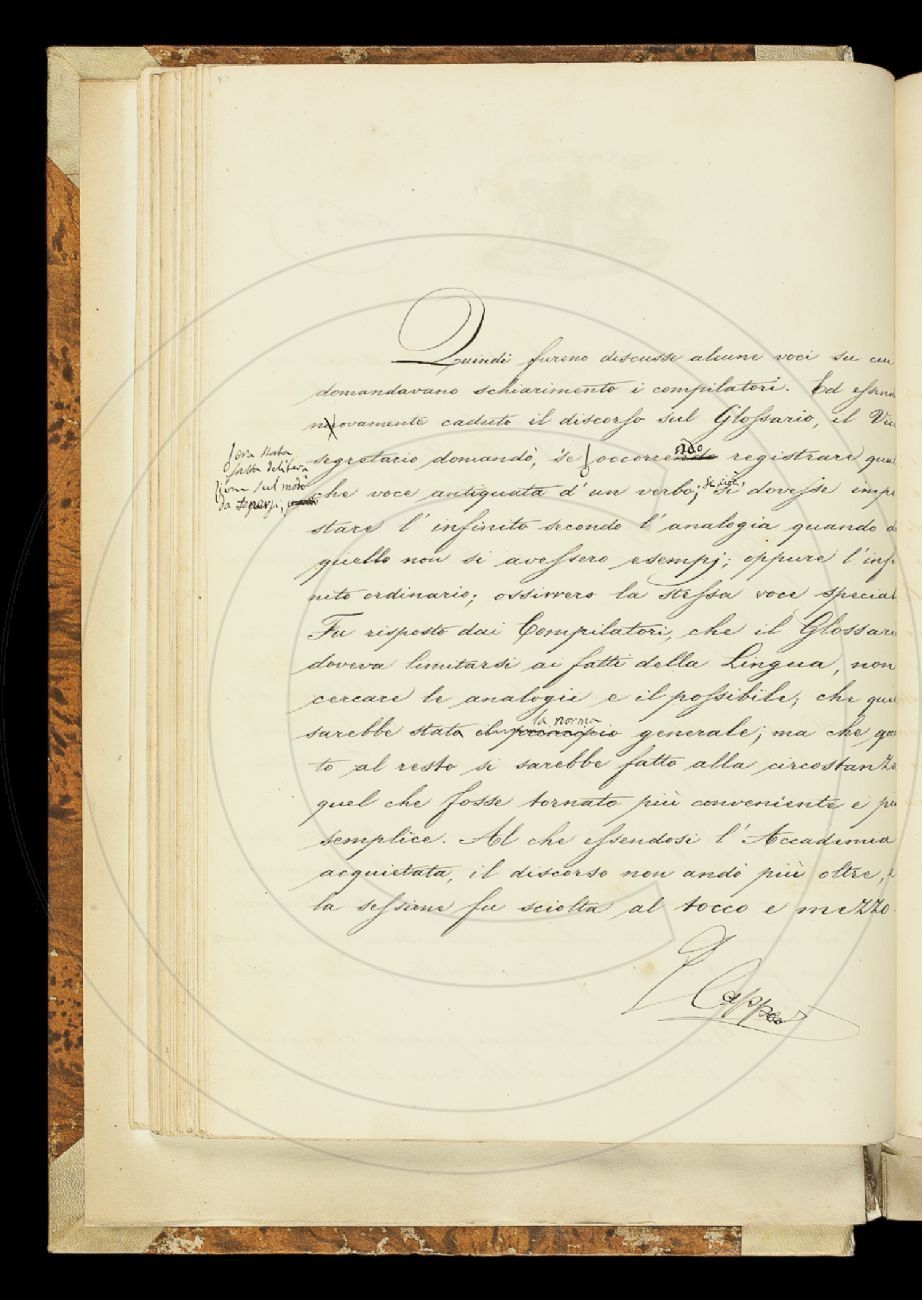 Quindi furono discusse alcune voci su cui
domandavano schiarimento i compilatori. Ed essend
novamente caduto il discorso sul Glossario, il Vice
segretario domandò, se occorrendo registrare qual
che voce antiquata d'un verbo, si dovesse impo
stare l'infinito secondo l'analogia quando d
quello non si avessero esempj; oppure l'infi
nito ordinario; ossivvero la stessa voce special
Fu risposto dai Compilatori, che il Glossari
doveva limitarsi ai fatti della Lingua, non
cercare le analogie e il possibile; che que
sarebbe stata la norma generale; ma che qua
to al resto si sarebbe fatto alla circostanza
quel che fosse tornato più conveniente e più
semplice. Al che essendosi l'Accademia
acquietata, il discorso non andò più oltre, e
la sessione fu sciolta al tocco e mezzo.
era stata
fatta delibera
zione sul modo
da tenersi,